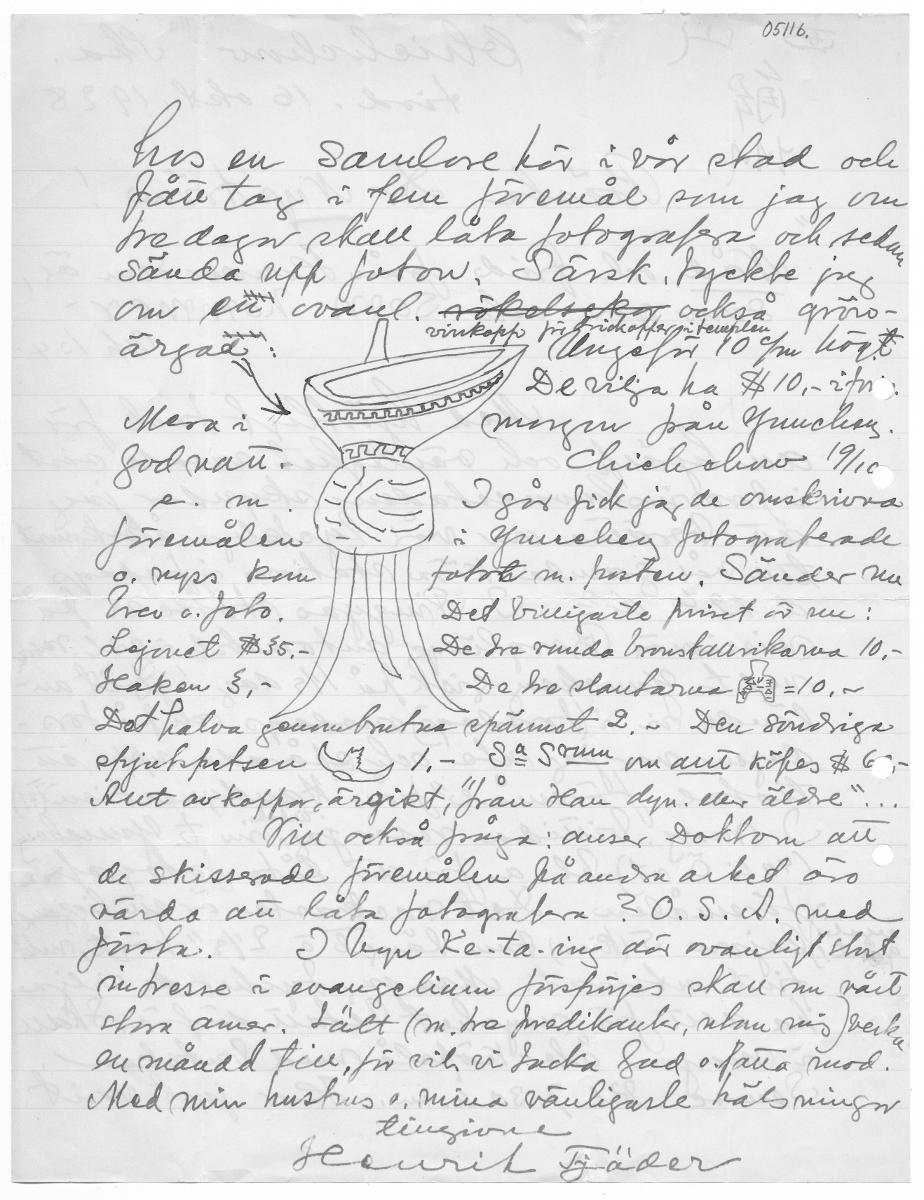 05116.
hos en samlare här i vår stad och
fått tag i fem föremål som jag om
tre dagar skall låta fotografera och sedan
sända upp foton. Särsk. tyckte jag
om ett ovanl. rökelsekar också grön-
vinkopp för drickoffer i templen
ärgad: Ungefär 10 c/m högt
De vilja ha $10,- i för.
Mera i morgon från Yuncheng.
God natt. Chiehchow 19/10
e. m. I går fick jag de omskrivna
föremålen i Yuncheng fotograferade
o. nyss kom foton m. posten. Sänder nu
brev o. foto. Det billigaste priset är nu:
Lejonet $35.- De tre runda bronstavrikarna 10,-
Haken 3,- De tre slantarna = 10.-
Det halva genombrutna spännet 2.- Den söndriga
spjutspetsen 1.- Sa Srum om allt köpes $ 6,-
Allt av koppar, ärgikt, "från Han dyn. eller äldre"...
Vill också fråga: anser Doktorn att
de skisserade föremålen på andra arket äro
värda att låta fotografera? O. S. A. med
första. I byn Ke-ta-ing där ovanligt stort
intresse i evangelium förspörjes skall nu vårt
stora amer. tält (m. tre predikanter, utan mig) verka
en månad till, för vilk. vi tacka Gud o. fatta mod.
Med min hustrus o. mina vänligaste hälsningar
tillgivne
Henrik Tjäder